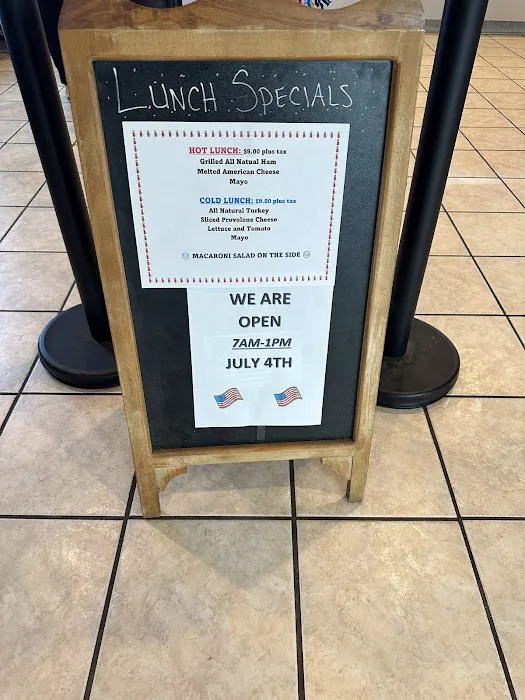 LUNCH SPECIALS
HOT LUNCH: $9.00 plus tax
Grilled All Natual Ham
Melted American Cheese
Mayo
COLD LUNCH: $9.00 plus tax
All Natural Turkey
Sliced Provolone Cheese
Lettuce and Tomato
Mayo
☺ MACARONI SALAD ON THE SIDE ☺
WE ARE
OPEN
7AM-1PM
JULY 4TH